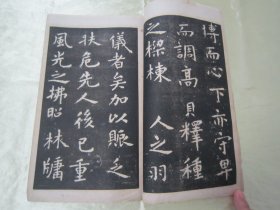 博而心下亦守卑
而調高貝釋種
之樑棟人之羽
儀者矣加以賑乏
扶危先人後己重
風光之拂照林牖